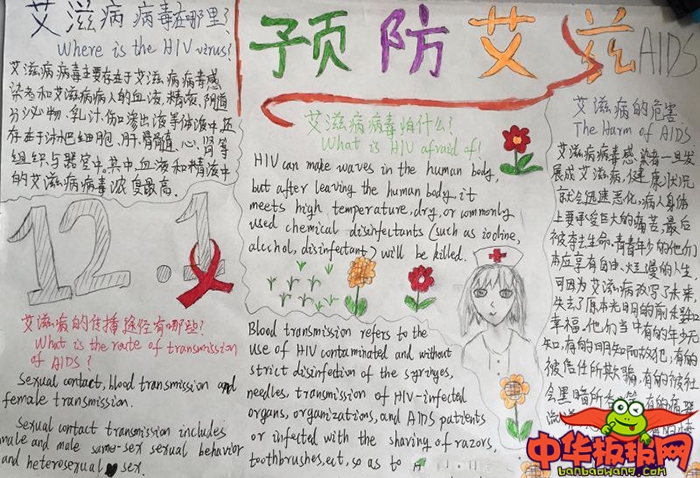 艾滋病病毒在哪里?
Where is the HIV virus?
艾滋病病毒主要存在于艾滋病病毒感
染者和艾滋病病人的血液、精液、阴道
分泌物、乳汁、伤口渗出液等体液中,还
存在于淋巴细胞、肝、脊髓、心、肾等
组织与器官中。其中,血液和精液中
的艾滋病病毒浓度最高。
预防艾滋AIDS
艾滋病病毒怕什么?
What is HIV afraid of?
HIV can make waves in the human body,
but after leaving the human body, it
meets high temperature, dry, or commonly
used chemical disinfectants (such as iodine,
alcohol, disinfectant) will be killed.
艾滋病的危害
The Harm of AIDS
艾滋病病毒感染者一旦发
展成艾滋病,健康状况
就会迅速恶化,病人身体
上要承受巨大的痛苦,最后
被夺去生命。青青年少的他们
本应享有自由、烂漫的人生,
可因为艾滋病改写了未来,
失去了原本光明的前途和
幸福,他们当中有的年少无
知,有的明知而故犯,有的
被信任所欺骗,有的被社
会黑暗所
12.1
艾滋病的传播途径有哪些?
What is the route of transmission
of AIDS?
Sexual contact, blood transmission and
female transmission.
Sexual contact transmission includes
male and male same-sex sexual behavior
and heterosexual sex.
Blood transmission refers to the
use of HIV contaminated and without
strict disinfection of the syringes,
needles, transmission of HIV-infected
organs, organizations, and AIDS patients
or infected with the shaving of razors,
toothbrushes, ect, so as to
中华板报网
banbaowang.com